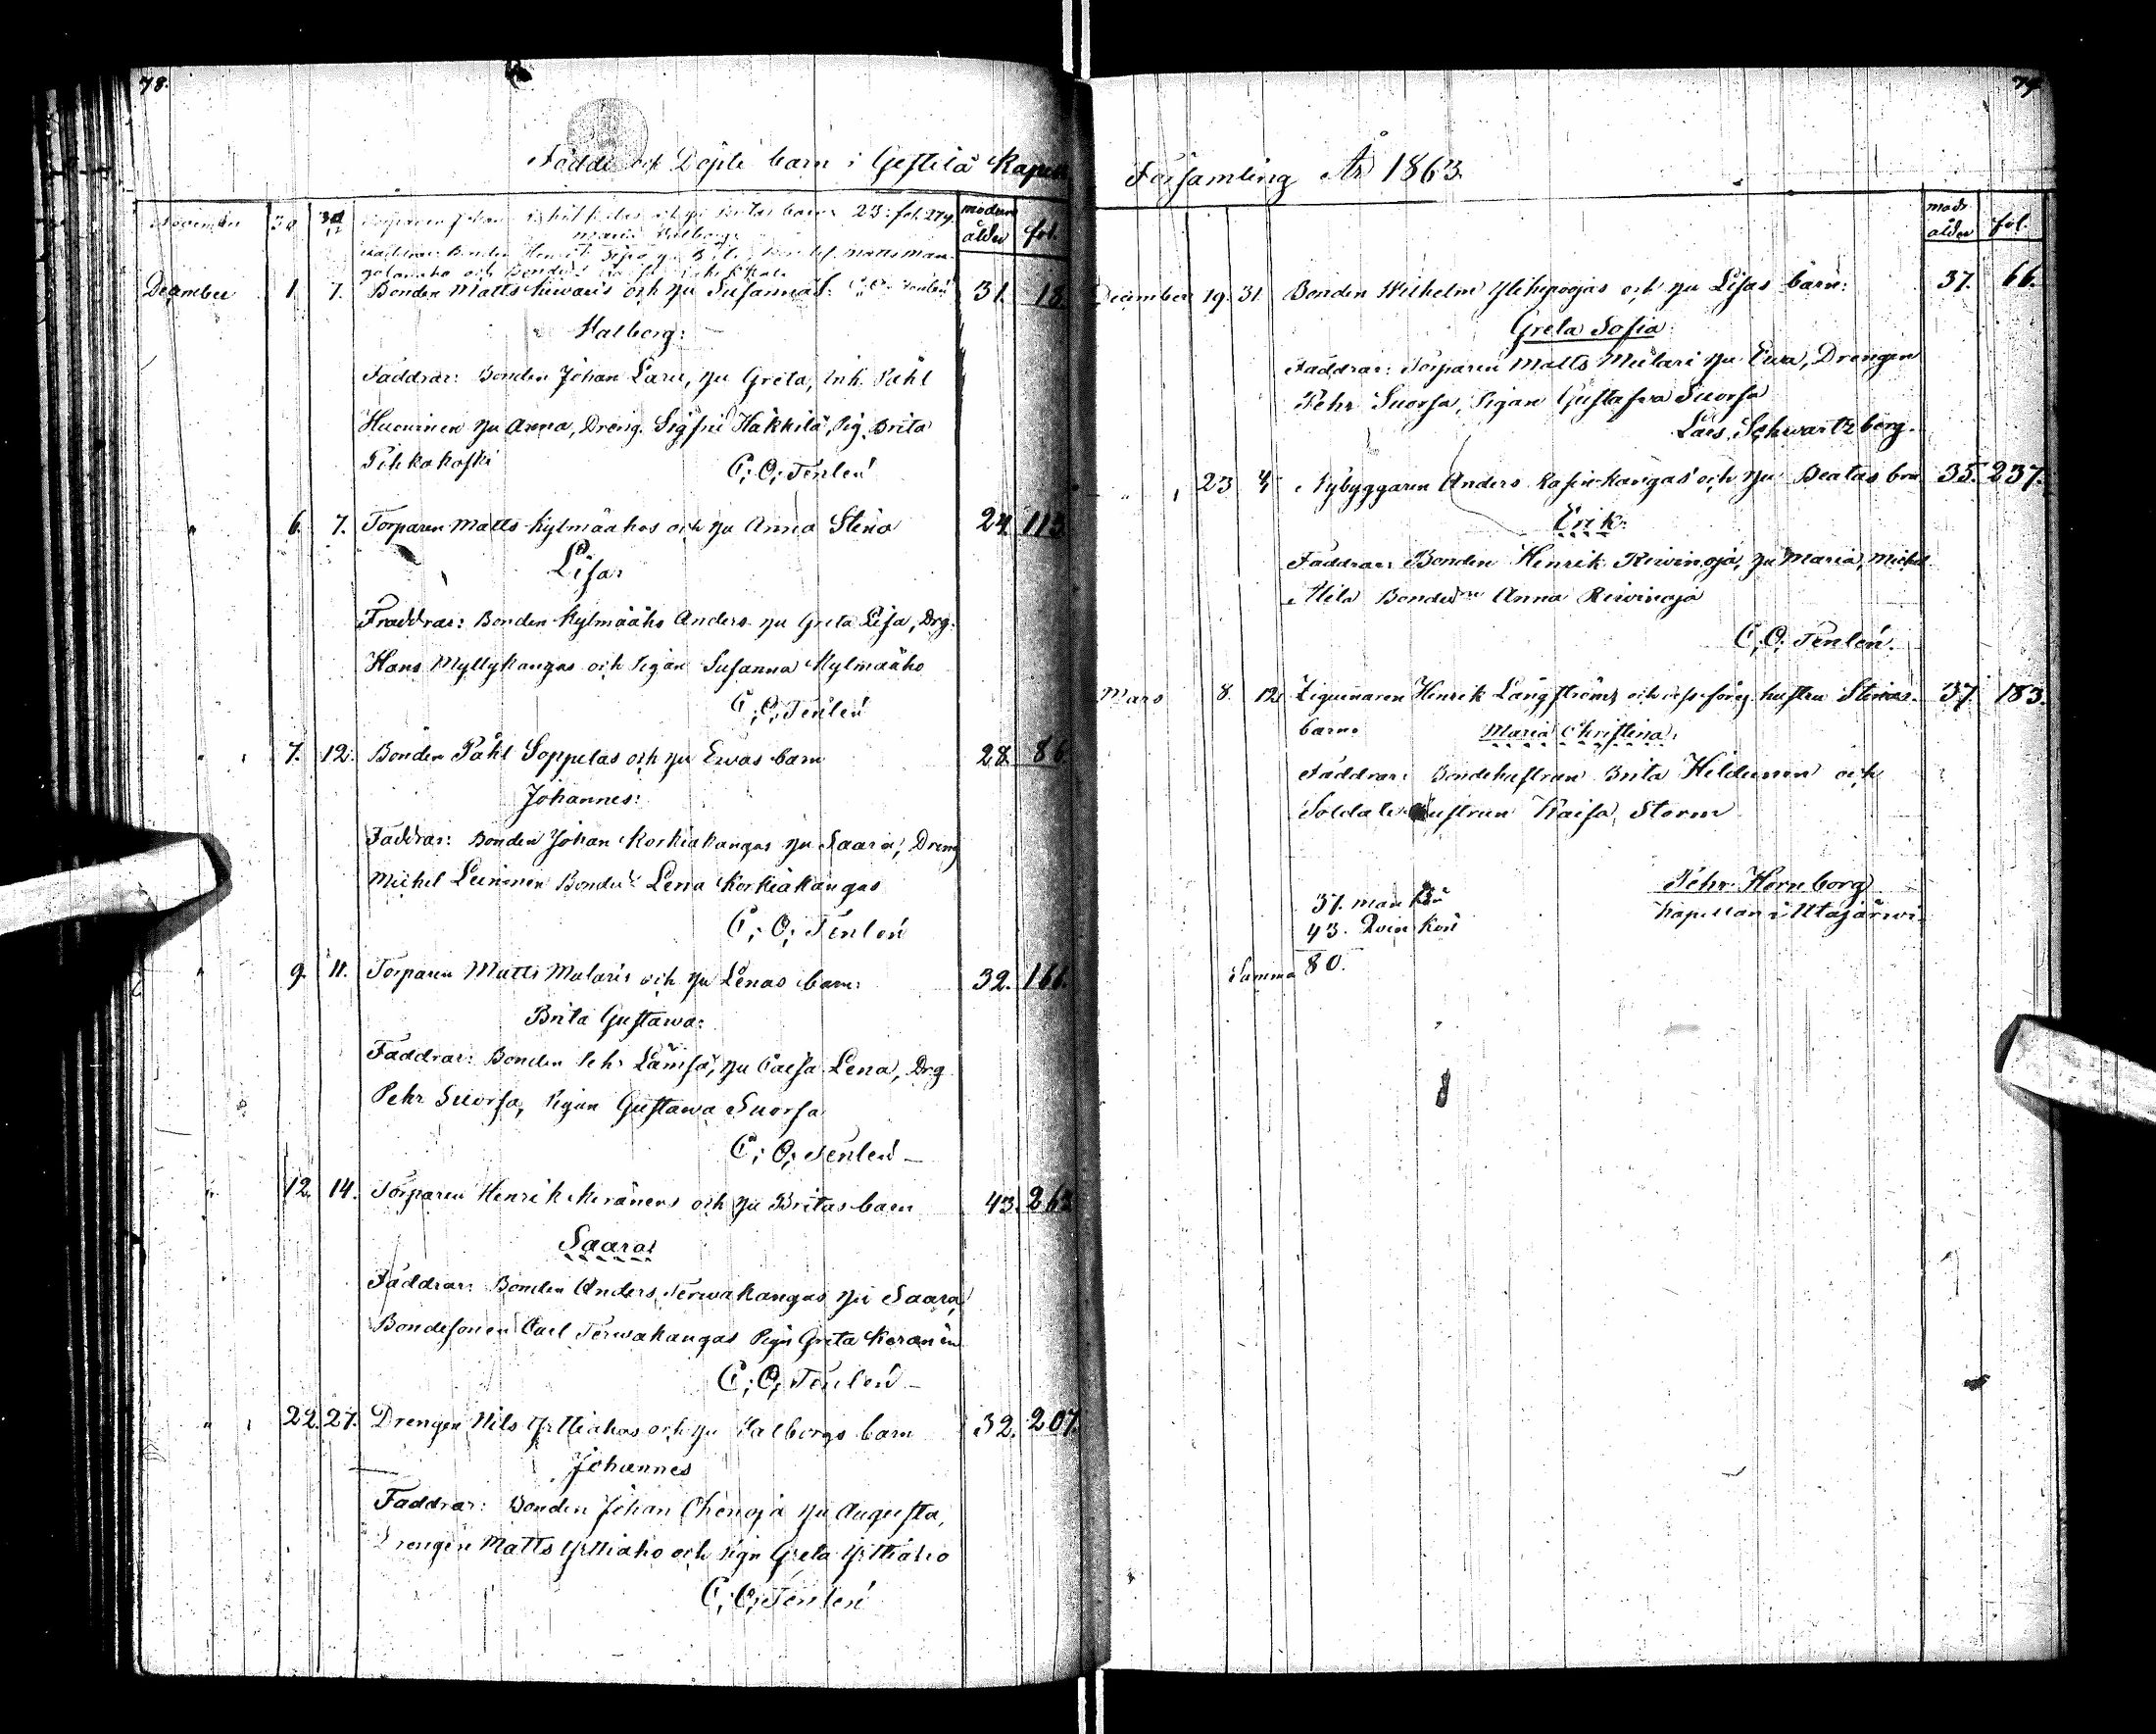 78.
Födde och Döpte barn i Gestilä Kapell
modrens ålder fol.
November 30 barn 23: fol. 279.
Maria Walborg:
Faddrar: Bonden Henrik
och
December 1. 7. Bonden Matts Kiwaris och hu Susannas: C: O: Tenlén 31. 18.
Walborg:
Faddrar: Bonden Johan Laru, hu Greta, Inh. Påhl
Huowinen hu Anna, Dreng. Sigfrid Häkkilä, Pig. Brita
Pihkakoski C; O; Tenlén
" 6. 7. Torparen Matts Kylmäahos och hu Anna Stina 24. 113.
Lisa:
Faddrar: Bonden Kylmäaho Anders hu Greta Lisa, Drg.
Hans Myllykangas och Pigan Susanna Kylmäaho
C; O; Tenlén
" 7. 12. Bonden Påhl Soppelas och hu Ewas barn 28. 86
Johannes:
Faddrar: Bonden Johan Korkiakangas hu Saara, Dreng
Michel Leinonen Bonded: Lena Korkiakangas
C; O; Tenlén
" 9. 11. Torparen Matts Mularis och hu Lenas barn: 32. 166.
Brita Gustawa:
Faddrar: Bonden Pehr Lämsä, hu Caisa Lena, Drg
Pehr Suorsa, Pigan Gustawa Suorsa
C; O; Tenlén —
" 12. 14. Torparen Henrik Keränens och hu Britas barn 43. 263
Saara:
Faddrar: Bonden Anders Terwakangas hu Saara,
Bondesonen Carl Terwakangas Pign Greta Keränen
C; O; Tenlén —
" 22. 27. Drengen Nils Yrttiahos och hu Walborgs barn 32. 207.
Johannes
Faddrar: Bonden Johan Ohenoja hu Augusta,
Drengen Matts Yrttiaho och Pign Greta Yrttiaho
C; O; Tenlén
79
Församling År 1863.
modr. ålder fol.
December 19. 31. Bonden Wilhelm Ylihepoojas och hu Lisas barn: 37. 66.
Greta Sofia:
Faddrar: Torparen Matts Mulari hu Ewa, Drengen
Pehr Suorsa, Pigan Gustafwa Suorsa
Lars Schwartzberg.
" 23 Nybyggaren Anders och hu Beatas brn 35. 237.
Erik:
Faddrar: Bonden Henrik Riwinoja, hu Maria, Michel
Bonded: Anna Riwinoja
C; O; Tenlén.
Mars 8. 12. Zigeunaren Henrik Långströms och hustru Stinas 37. 183.
barn: Maria Christina:
Faddrar: Bondehustrun Brita Hildunen och
Soldatshustrun Kaisa Storm
Pehr Hornborg
Kapellan i Utajärwi
37. man kön
43. Qvin kön
Summa 80.